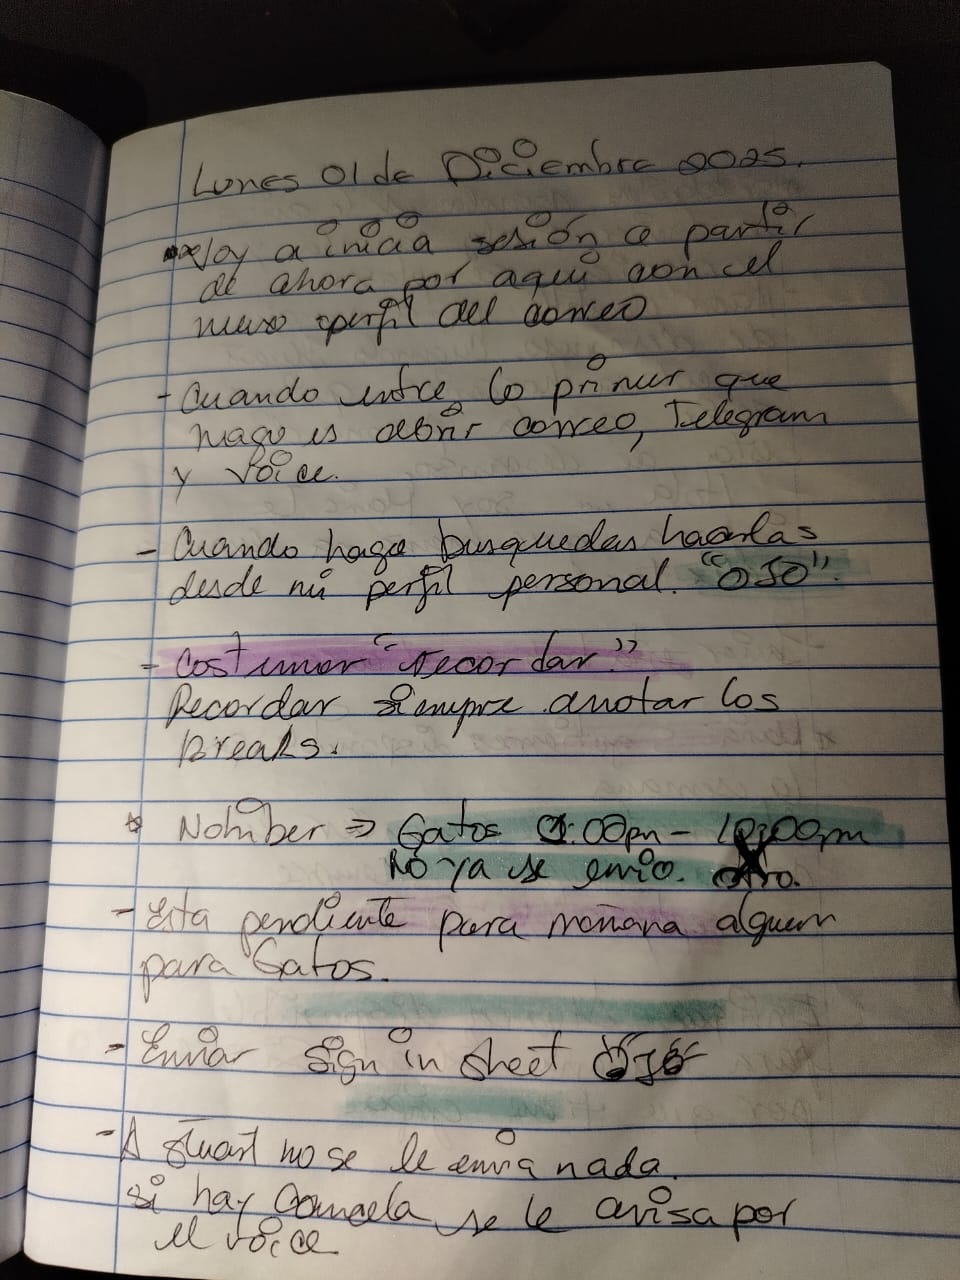 Lunes 01 de Diciembre 2025.
Voy a inicia sesión a partir
de ahora por aqui con el
nuevo perfil del correo
- Cuando entre, lo primer que
hago es abrir correo, Telegram
y Voice.
- Cuando haga busquedas hacerlas
desde mi perfil personal. "OJO".
- Costumer "recordar"
Recordar siempre anotar los
Breaks.
Nomber => Gatos 1:00pm - 10:00pm
No ya se envio.
- Esta pendiente para mañana alguem
para Gatos.
- Enviar Sign in sheet OJO
- A Stuart no se le envia nada.
si hay se le avisa por
el voice